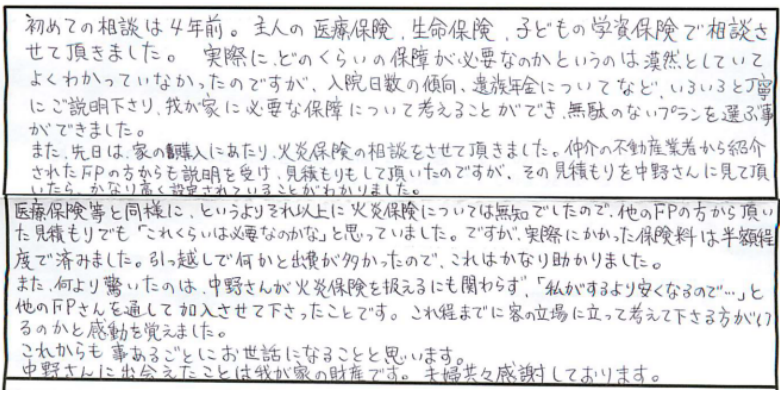 初めての相談は4年前。主人の医療保険、生命保険、子どもの学資保険で相談さ
せて頂きました。 実際に、どのくらいの保障が必要なのかというのは漠然としていて
よくわかっていなかったのですが、入院日数の傾向、遺族年金についてなど、いろいろと丁寧
にご説明下さり、我が家に必要な保障について考えることができ、無駄のないプランを選ぶ事
ができました。
また、先日は、家の購入にあたり、火災保険の相談をさせて頂きました。仲介の不動産業者から紹介
されたFPの方からも説明を受け、見積もりもして頂いたのですが、その見積もりを中野さんに見て頂
いたら、かなり高く設定されていることがわかりました。
医療保険等と同様に、というよりそれ以上に火災保険については無知でしたので、他のFPの方から頂い
た見積もりでも「これくらいは必要なのかな」と思っていました。ですが、実際にかかった保険料は半額程
度で済みました。引っ越しで何かと出費が多かったので、これはかなり助かりました。
また、何より驚いたのは、中野さんが火災保険を扱えるにも関わらず、「私がするより安くなるので…」と
他のFPさんを通して加入させて下さったことです。これ程までに客の立場に立って考えて下さる方がい
るのかと感動を覚えました。
これからも事あるごとにお世話になることと思います。
中野さんに出会えたことは我が家の財産です。夫婦共々感謝しております。